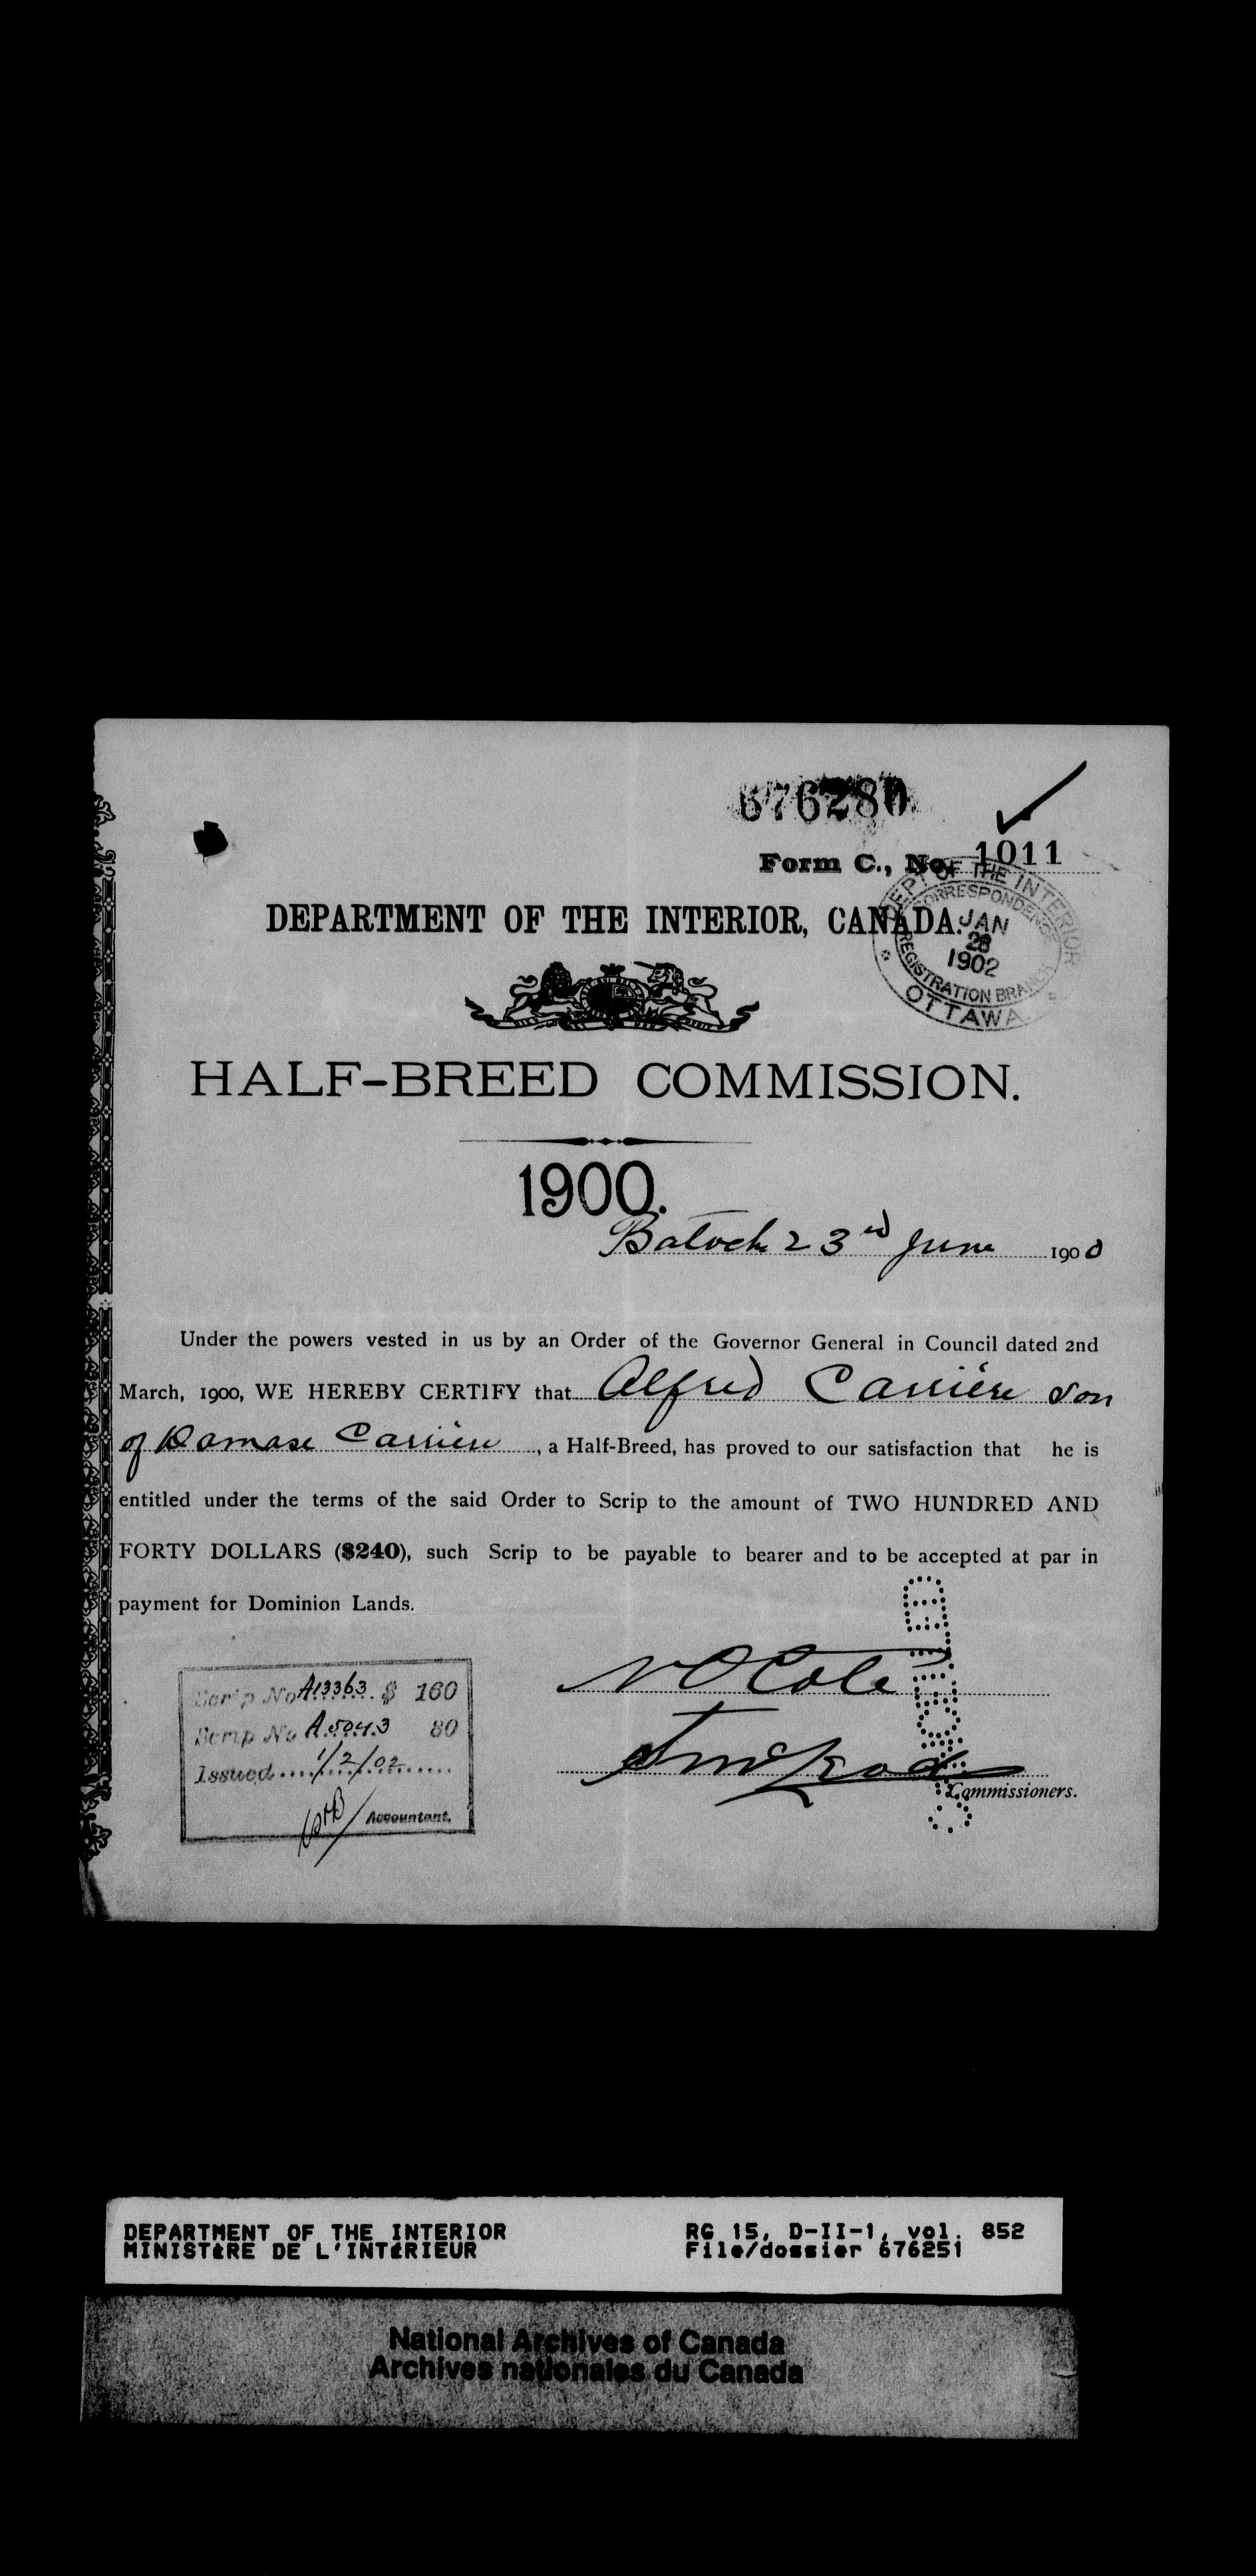 676280
Form C., No. 1011
DEPT OF THE INTERIOR
CORRESPONDENCE
JAN
28
1902
REGISTRATION BRANCH
OTTAWA
DEPARTMENT OF THE INTERIOR, CANADA.
HALF-BREED COMMISSION.
1900.
Batoche 23rd June 1900
Under the powers vested in us by an Order of the Governor General in Council dated 2nd
March, 1900, WE HEREBY CERTIFY that Alfred Carrière son
of Damase Carrière, a Half-Breed, has proved to our satisfaction that he is
entitled under the terms of the said Order to Scrip to the amount of TWO HUNDRED AND
FORTY DOLLARS ($240), such Scrip to be payable to bearer and to be accepted at par in
payment for Dominion Lands.
Scrip No A13363 $ 160
Scrip No A.5043 80
Issued 1/2/02
Accountant.
N O Coté
Commissioners.
DEPARTMENT OF THE INTERIOR RG 15, D-II-1, vol. 852
MINISTÈRE DE L'INTÉRIEUR File/dossier 676251
National Archives of Canada
Archives nationales du Canada